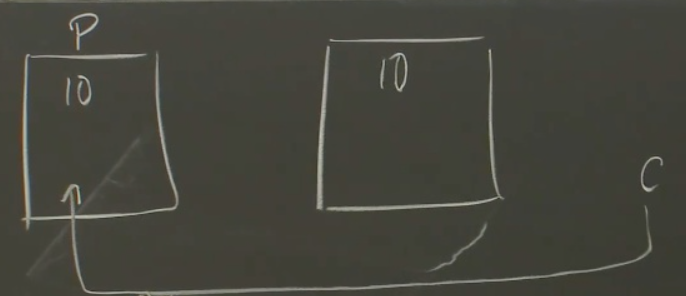 P
10 10
C